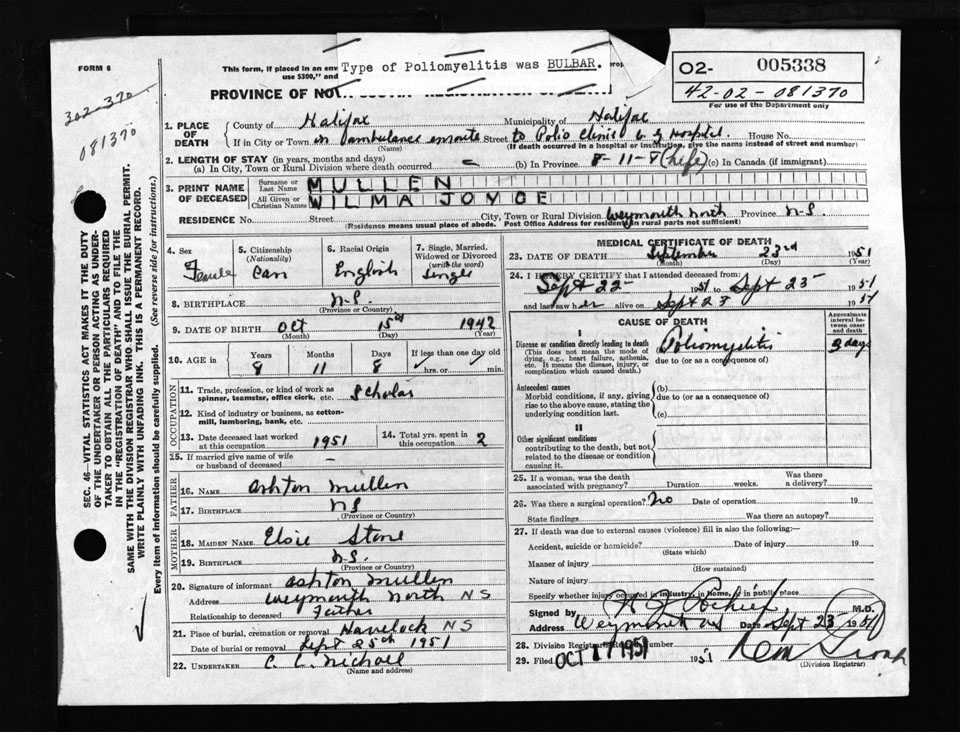 FORM 6
This form, if placed in an env
use $300," and
Type of Poliomyelitis was BULBAR.
O2- 005338
42-02-081370
For use of the Department only
302-370
081370
PROVINCE OF NOVA SCOTIA REGISTRATION OF DEATH
1. PLACE OF DEATH
County of Halifax Municipality of Halifax
If in City or Town in ambulance enroute Street to Polio Clinic V. G. Hospital. House No.
(Name) (If death occurred in a hospital or institution, give the name instead of street and number)
2. LENGTH OF STAY (in years, months and days)
(a) In City, Town or Rural Division where death occurred – (b) In Province 8-11-8 (Life) (c) In Canada (if immigrant)
3. PRINT NAME OF DECEASED
Surname or Last Name MULLEN
All Given or Christian Names WILMA JOYCE
RESIDENCE No. Street City, Town or Rural Division Weymouth North Province N.S.
(Residence means usual place of abode. Post Office Address for resident in rural parts not sufficient)
4. Sex Female
5. Citizenship (Nationality) Can
6. Racial Origin English
7. Single, Married, Widowed or Divorced (write the word) Single
8. BIRTHPLACE N.S.
(Province or Country)
9. DATE OF BIRTH Oct 15th 1942
(Month) (Day) (Year)
10. AGE in Years 8 Months 11 Days 8 If less than one day old hrs. or min.
OCCUPATION
11. Trade, profession, or kind of work as spinner, teamster, office clerk, etc. Scholar
12. Kind of industry or business, as cotton-mill, lumbering, bank, etc.
13. Date deceased last worked at this occupation 1951
14. Total yrs. spent in this occupation 2
15. If married give name of wife or husband of deceased –
FATHER
16. NAME Ashton Mullen
17. BIRTHPLACE N.S.
(Province or Country)
MOTHER
18. MAIDEN NAME Elsie Stone
19. BIRTHPLACE N.S.
(Province or Country)
20. Signature of informant Ashton Mullen
Address Weymouth North NS
Relationship to deceased Father
21. Place of burial, cremation or removal Havelock NS
Date of burial or removal Sept 25th 1951
22. UNDERTAKER C. L. Nichoel
(Name and address)
MEDICAL CERTIFICATE OF DEATH
23. DATE OF DEATH September 23rd 1951
(Month) (Day) (Year)
24. I HEREBY CERTIFY that I attended deceased from:
Sept 22 1951 to Sept 23 1951
and last saw her alive on Sept 23 1951
CAUSE OF DEATH
Approximate interval between onset and death
I
Disease or condition directly leading to death
(This does not mean the mode of dying, e.g., heart failure, asthenia, etc. It means the disease, injury, or complication which caused death.)
Poliomyelitis 3 days
due to (or as a consequence of)
Antecedent causes
Morbid conditions, if any, giving rise to the above cause, stating the underlying condition last.
(b)
due to (or as a consequence of)
(c)
II
Other significant conditions
contributing to the death, but not related to the disease or condition causing it.
25. If a woman, was the death associated with pregnancy? Duration weeks. Was there a delivery?
26. Was there a surgical operation? No Date of operation 19
State findings Was there an autopsy?
27. If death was due to external causes (violence) fill in also the following:—
Accident, suicide or homicide? Date of injury 19
(State which)
Manner of injury
(How sustained)
Nature of injury
Specify whether injury occurred in industry, in home, or in public place
Signed by M.D.
Address Weymouth NS Date Sept 23 1951
28. Division Registrar's Record Number
29. Filed OCT 17 1951 1951
(Division Registrar)
SEC. 46—VITAL STATISTICS ACT MAKES IT THE DUTY
OF THE UNDERTAKER OR PERSON ACTING AS UNDER-
TAKER TO OBTAIN ALL THE PARTICULARS REQUIRED
IN THE "REGISTRATION OF DEATH" AND TO FILE THE
SAME WITH THE DIVISION REGISTRAR WHO SHALL ISSUE THE BURIAL PERMIT.
WRITE PLAINLY WITH UNFADING INK. THIS IS A PERMANENT RECORD.
Every item of information should be carefully supplied. (See reverse side for instructions.)